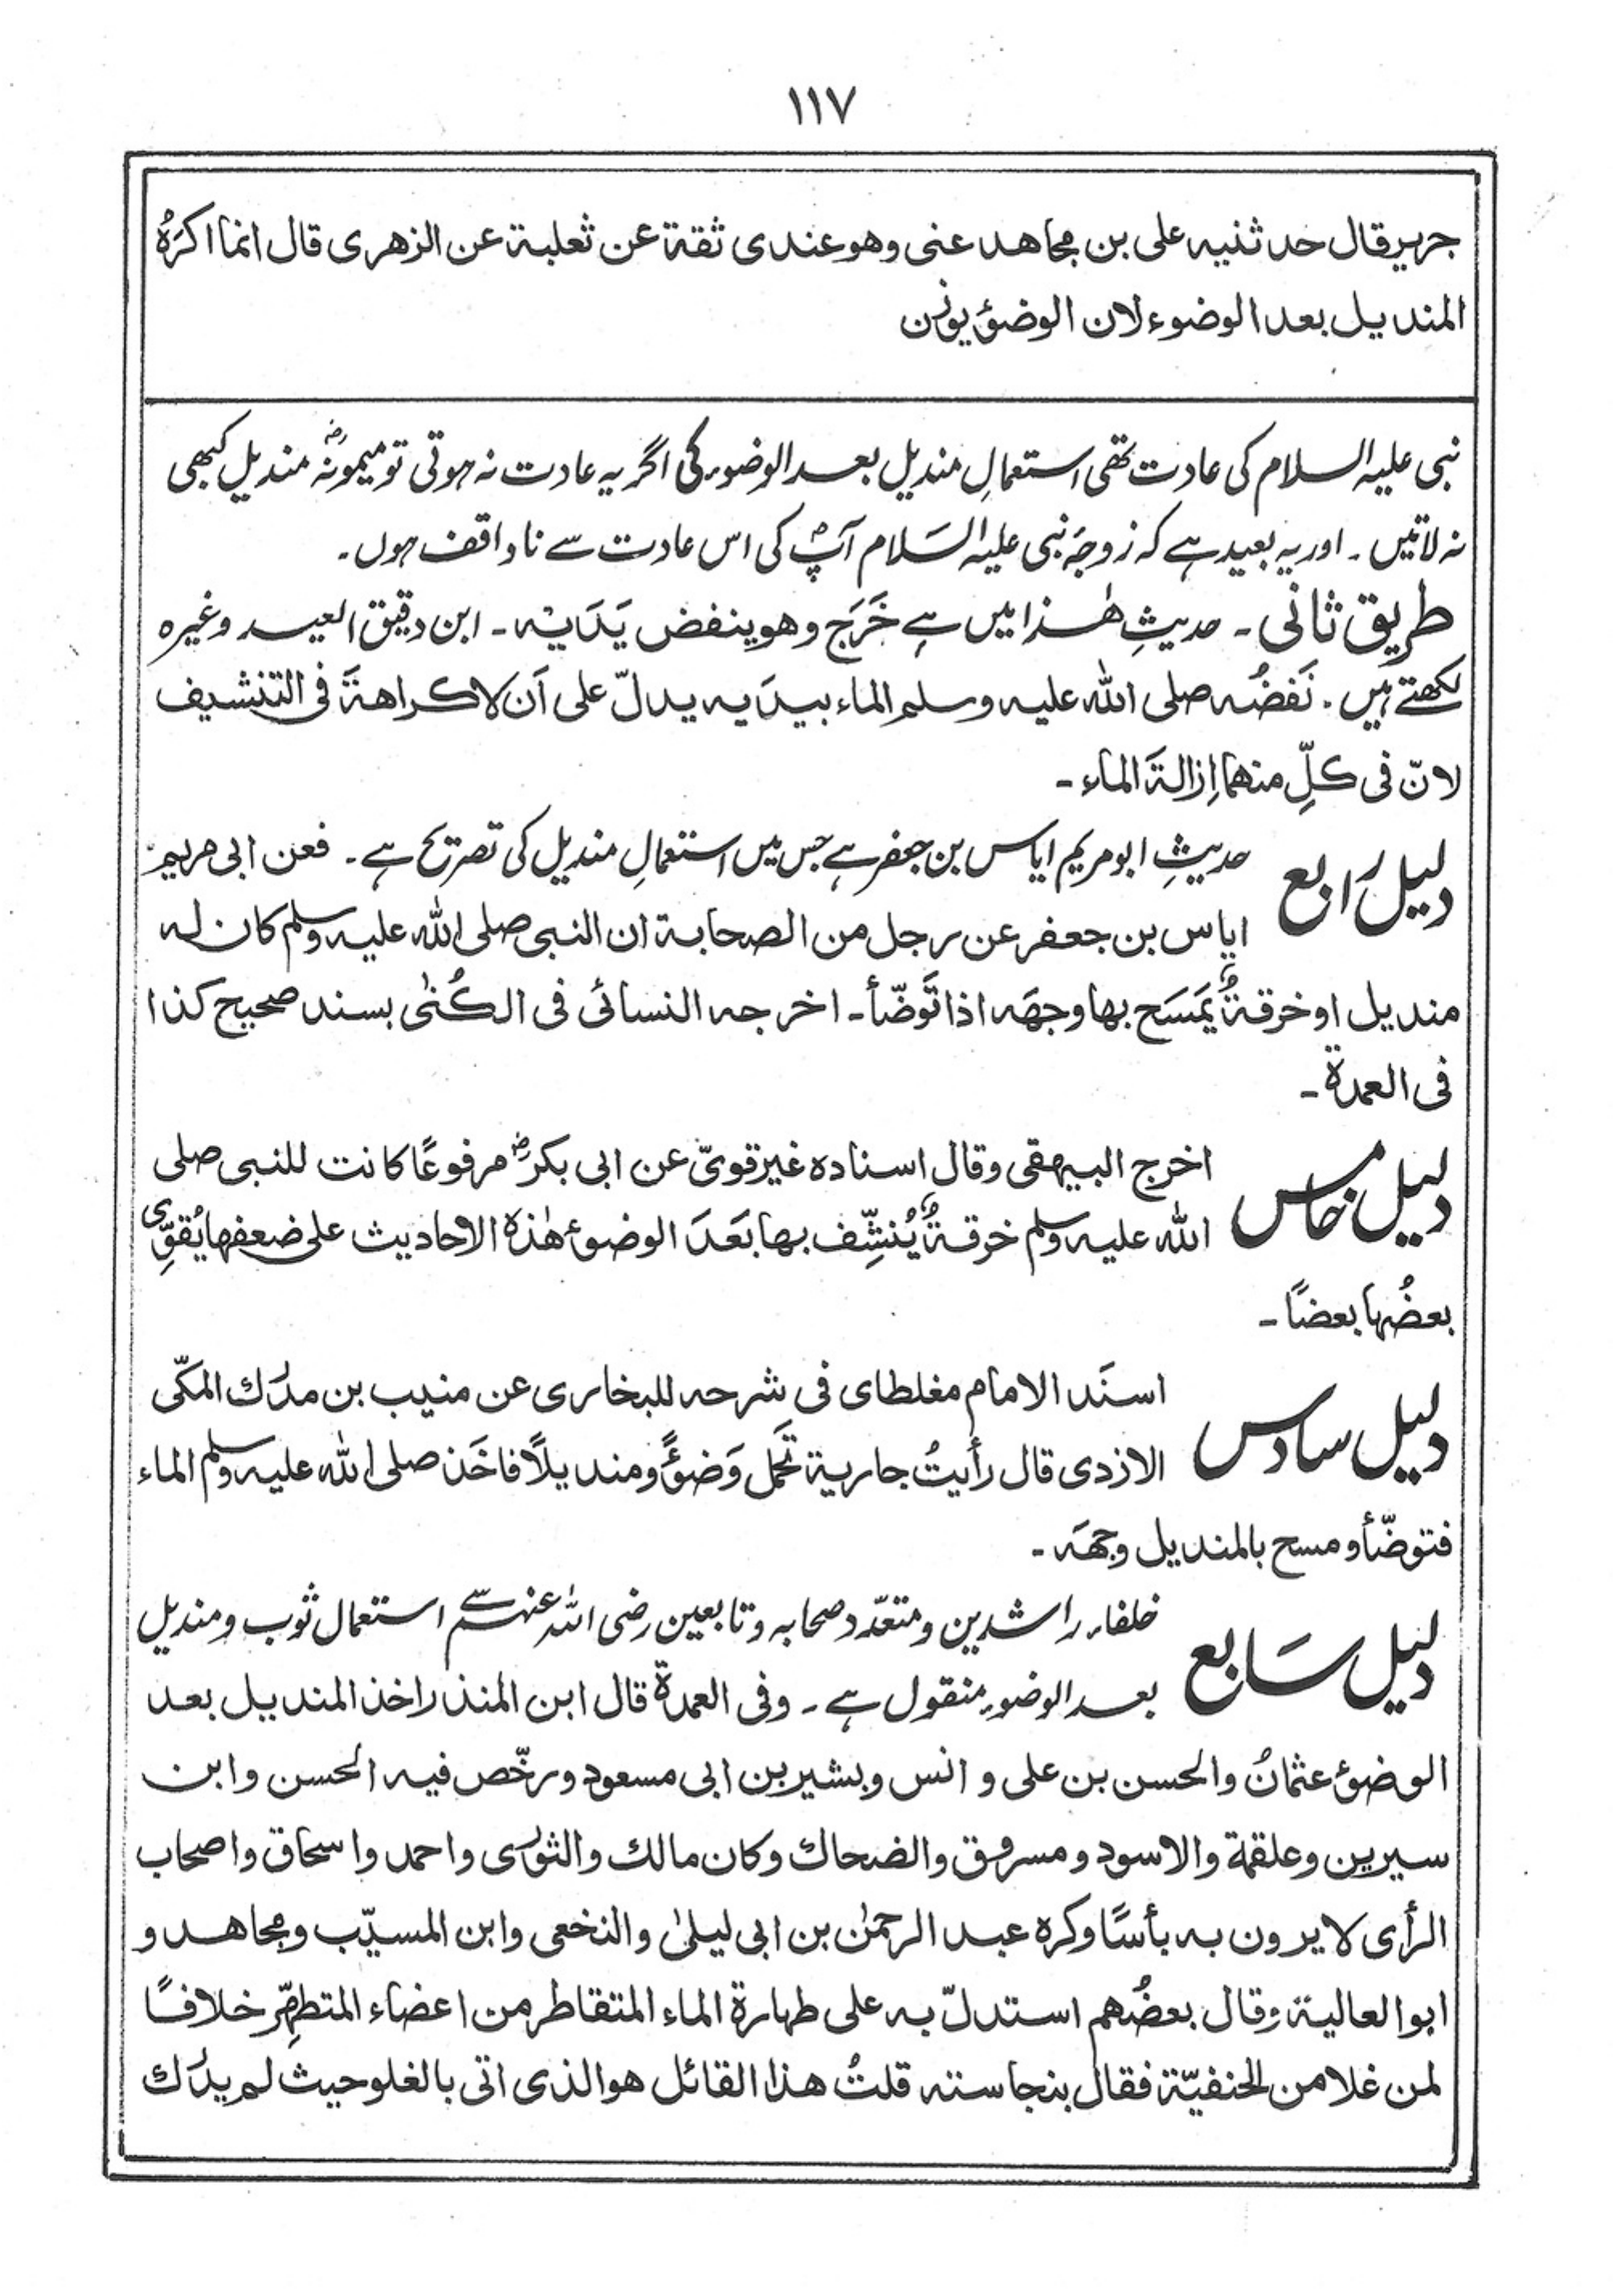 ۱۱۷
جریر قال حدثنیه علی بن مجاهد عنی وهو عندی ثقة عن ثعلبة عن الزهری قال انما اکرَهُ
المندیل بعد الوضوء لان الوضؤَ یوزن
نبی علیہ السلام کی عادت تھی استعمالِ مندیل بعد الوضوء کی اگر یہ عادت نہ ہوتی تو میمونہؓ مندیل کبھی
نہ لاتیں ۔ اور یہ بعید ہے کہ زوجۂ نبی علیہ السَلام آپؐ کی اس عادت سے ناواقف ہوں ۔
طریق ثانی ۔ حدیثِ ھٰذا میں ہے خَرَج وهو ینفض یَدَیْہ ۔ ابن دقیق العید وغیرہ
لکھتے ہیں ۔ نَفضُہ صلی اللہ علیہ وسلم الماء بیدَیہ یدلّ علی اَن لاکراهةَ فی التنشیف
لانّ فی کلِّ منهما اِزالةَ الماء ۔
دلیل رَابع حدیثِ ابو مریم ایاس بن جعفر ہے جس میں استعمالِ مندیل کی تصریح ہے ۔ فعن ابی مریم
ایاس بن جعفر عن رجل من الصحابة ان النبی صلی اللہ علیہ وسلم کان لہ
مندیل او خرقةٌ یَمَسَح بها وجهَہ اذا تَوضّأ ۔ اخرجہ النسائی فی الکُنٰی بسند صحیح کذا
فی العمدة ۔
دلیل خامس اخرج البیهقی وقال اسنادہ غیر قویّ عن ابی بکرؓ مرفوعًا کانت للنبی صلی
اللہ علیہ وسلم خرقةٌ یُنشِّف بها بَعَدَ الوضوءِ هٰذہ الاحادیث علی ضعفها یُقوِّی
بعضُها بعضًا ۔
دلیل سادس اسنَد الامام مغلطای فی شرحہ للبخاری عن منیب بن مدرَك المکّی
الازدی قال رأیتُ جاریة تَحمل وَضوءًا ومندیلًا فاخَذ صلی اللہ علیہ وسلم الماء
فتوضّأ ومسح بالمندیل وجهَہ ۔
دلیل سَابع خلفاء راشدین و متعدّد صحابہ و تابعین رضی اللہ عنہم سے استعمال ثوب و مندیل
بعد الوضوءِ منقول ہے ۔ وفی العمدة قال ابن المنذر اخذ المندیل بعد
الوضوءِ عثمانُ والحسن بن علی و انس وبشیر بن ابی مسعود ورخّص فیہ الحسن وابن
سیرین وعلقمة والاسود ومسروق والضحاك وکان مالك والثوری واحمد واسحاق واصحاب
الرأی لا یرون بہ بأسًا وکرہ عبد الرحمٰن بن ابی لیلیٰ والنخعی وابن المسیّب ومجاهد و
ابوالعالیة وقال بعضُهم استدلّ بہ علی طهارة الماء المتقاطر من اعضاء المتطهّر خلافًا
لمن غلا من الحنفیّة فقال بنجاستہ قلتُ هذا القائل هوالذی اتی بالغلو حیث لم یدرك